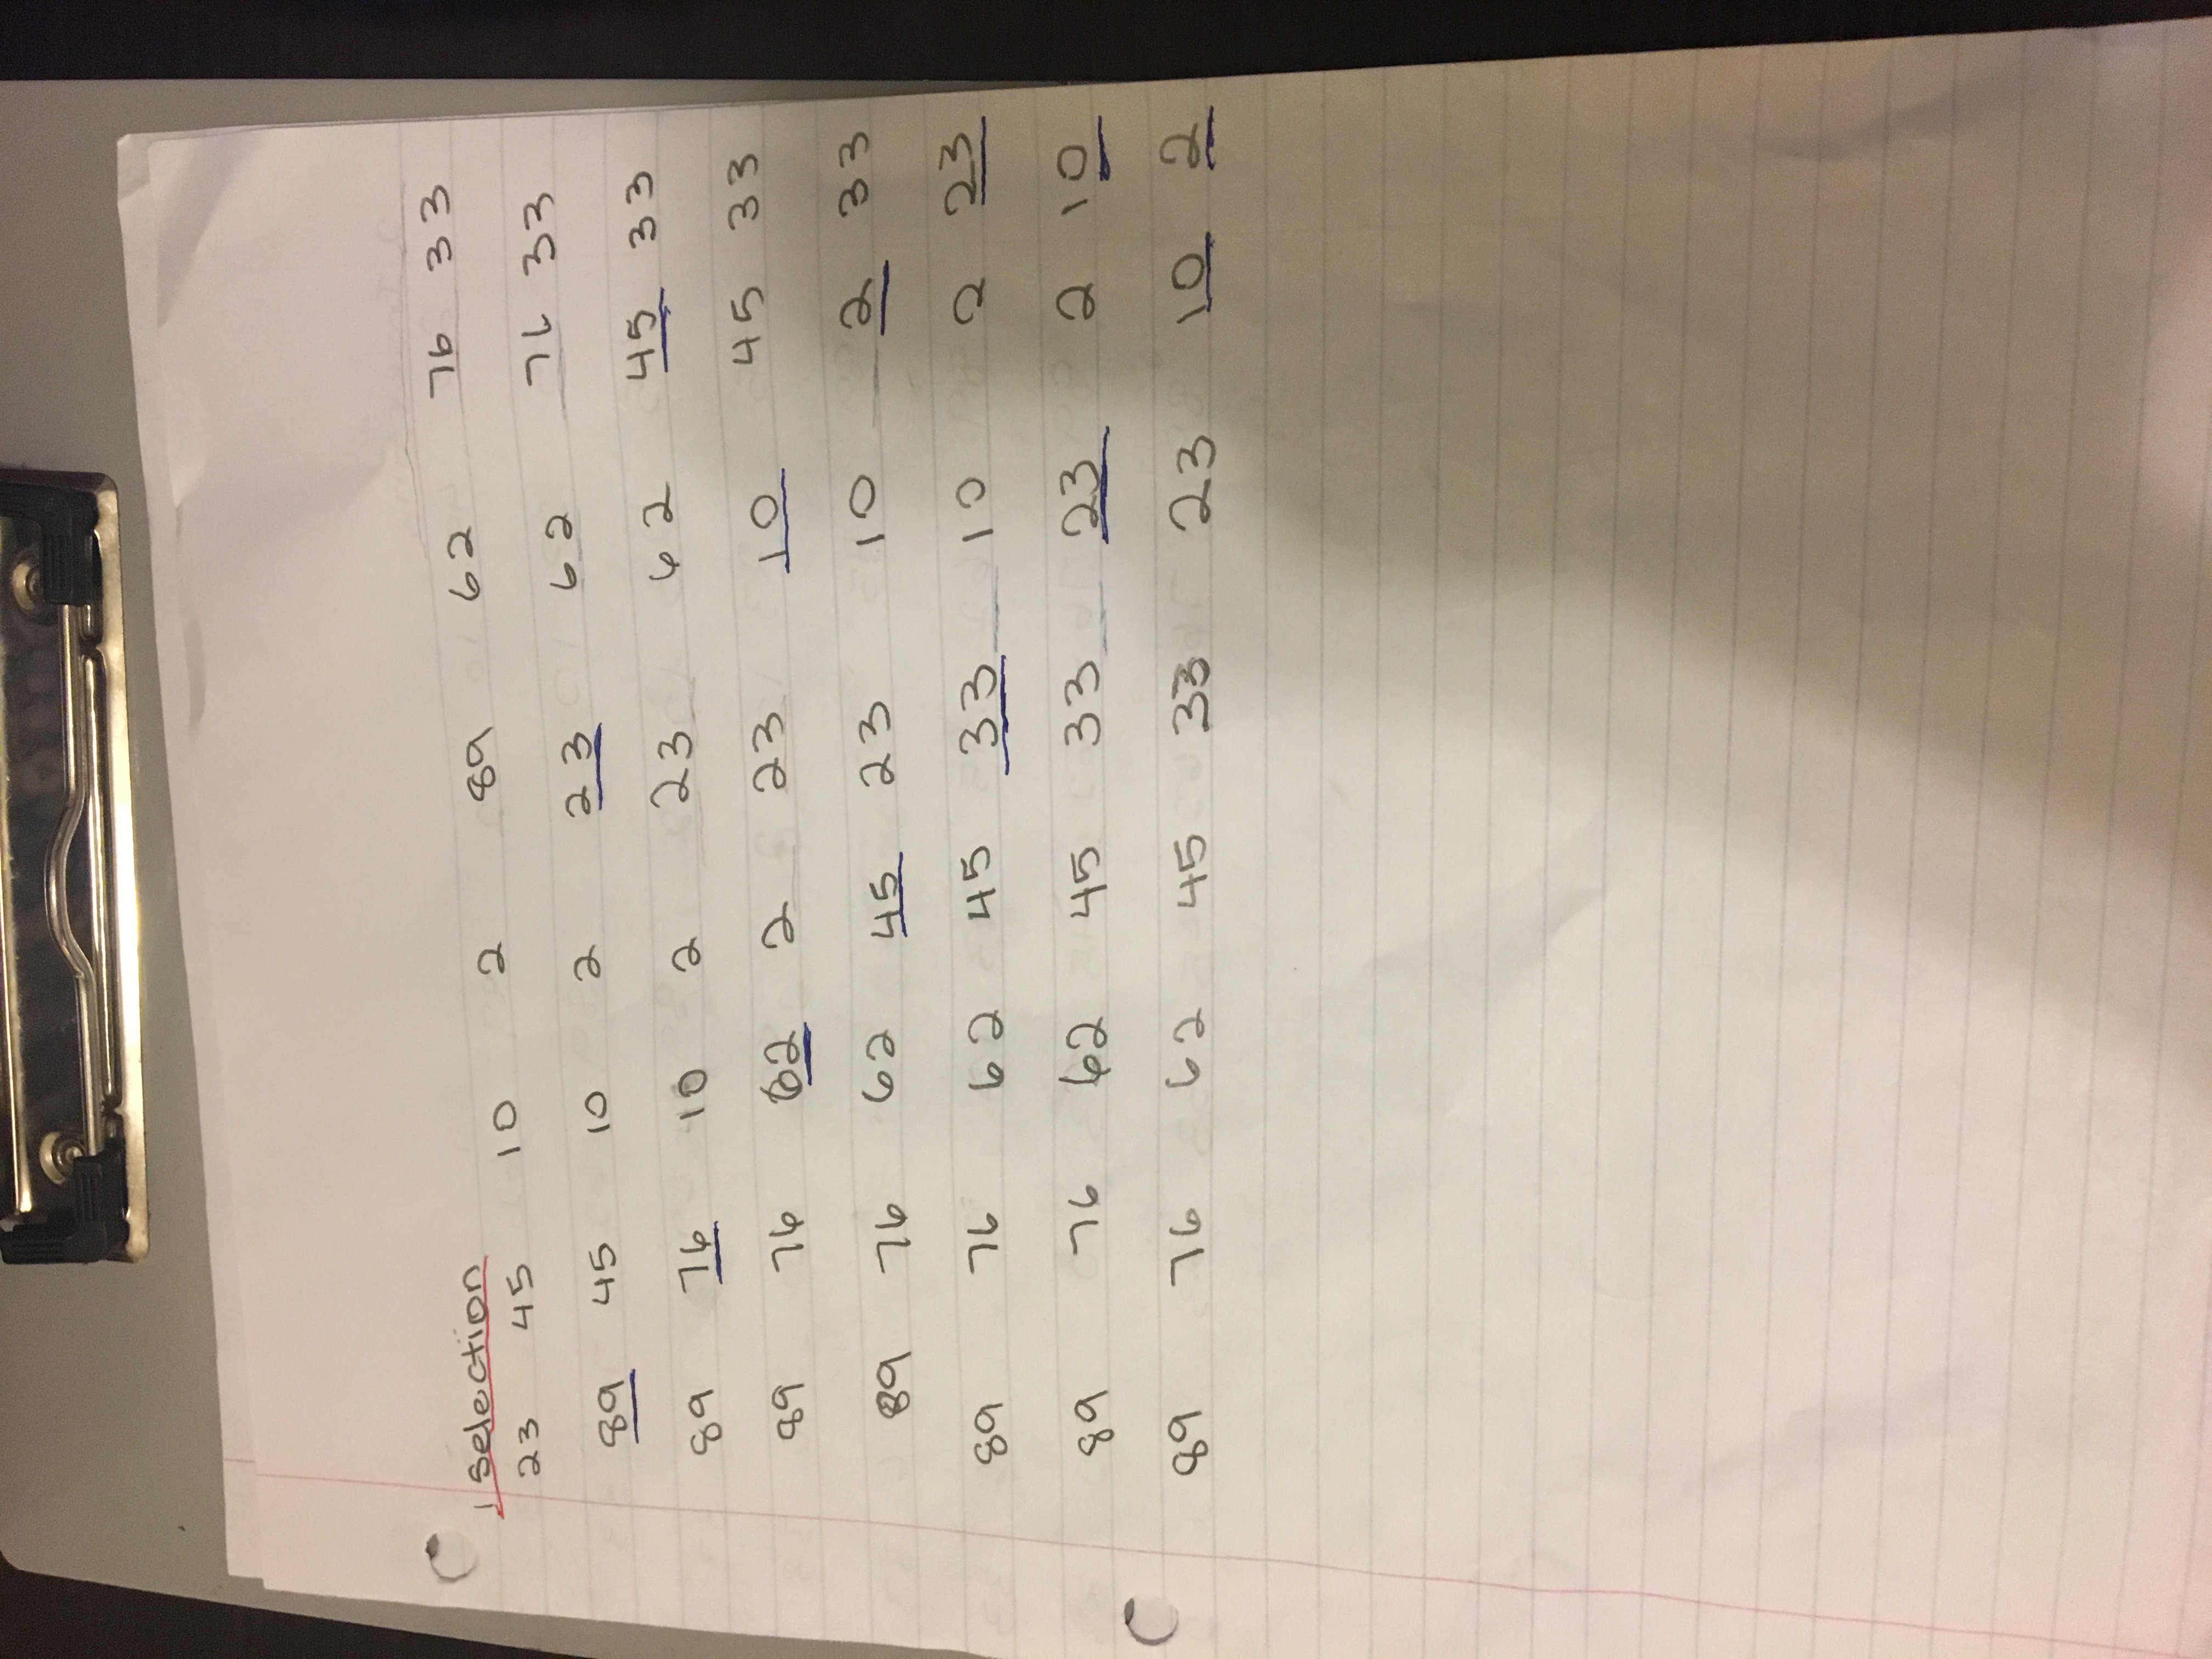 1 Selection
23 45 10 2 89 62 76 33
89 45 10 2 23 62 76 33
89 76 10 2 23 62 45 33
89 76 62 2 23 10 45 33
89 76 62 45 23 10 2 33
89 76 62 45 33 10 2 23
89 76 62 45 33 23 2 10
89 76 62 45 33 23 10 2